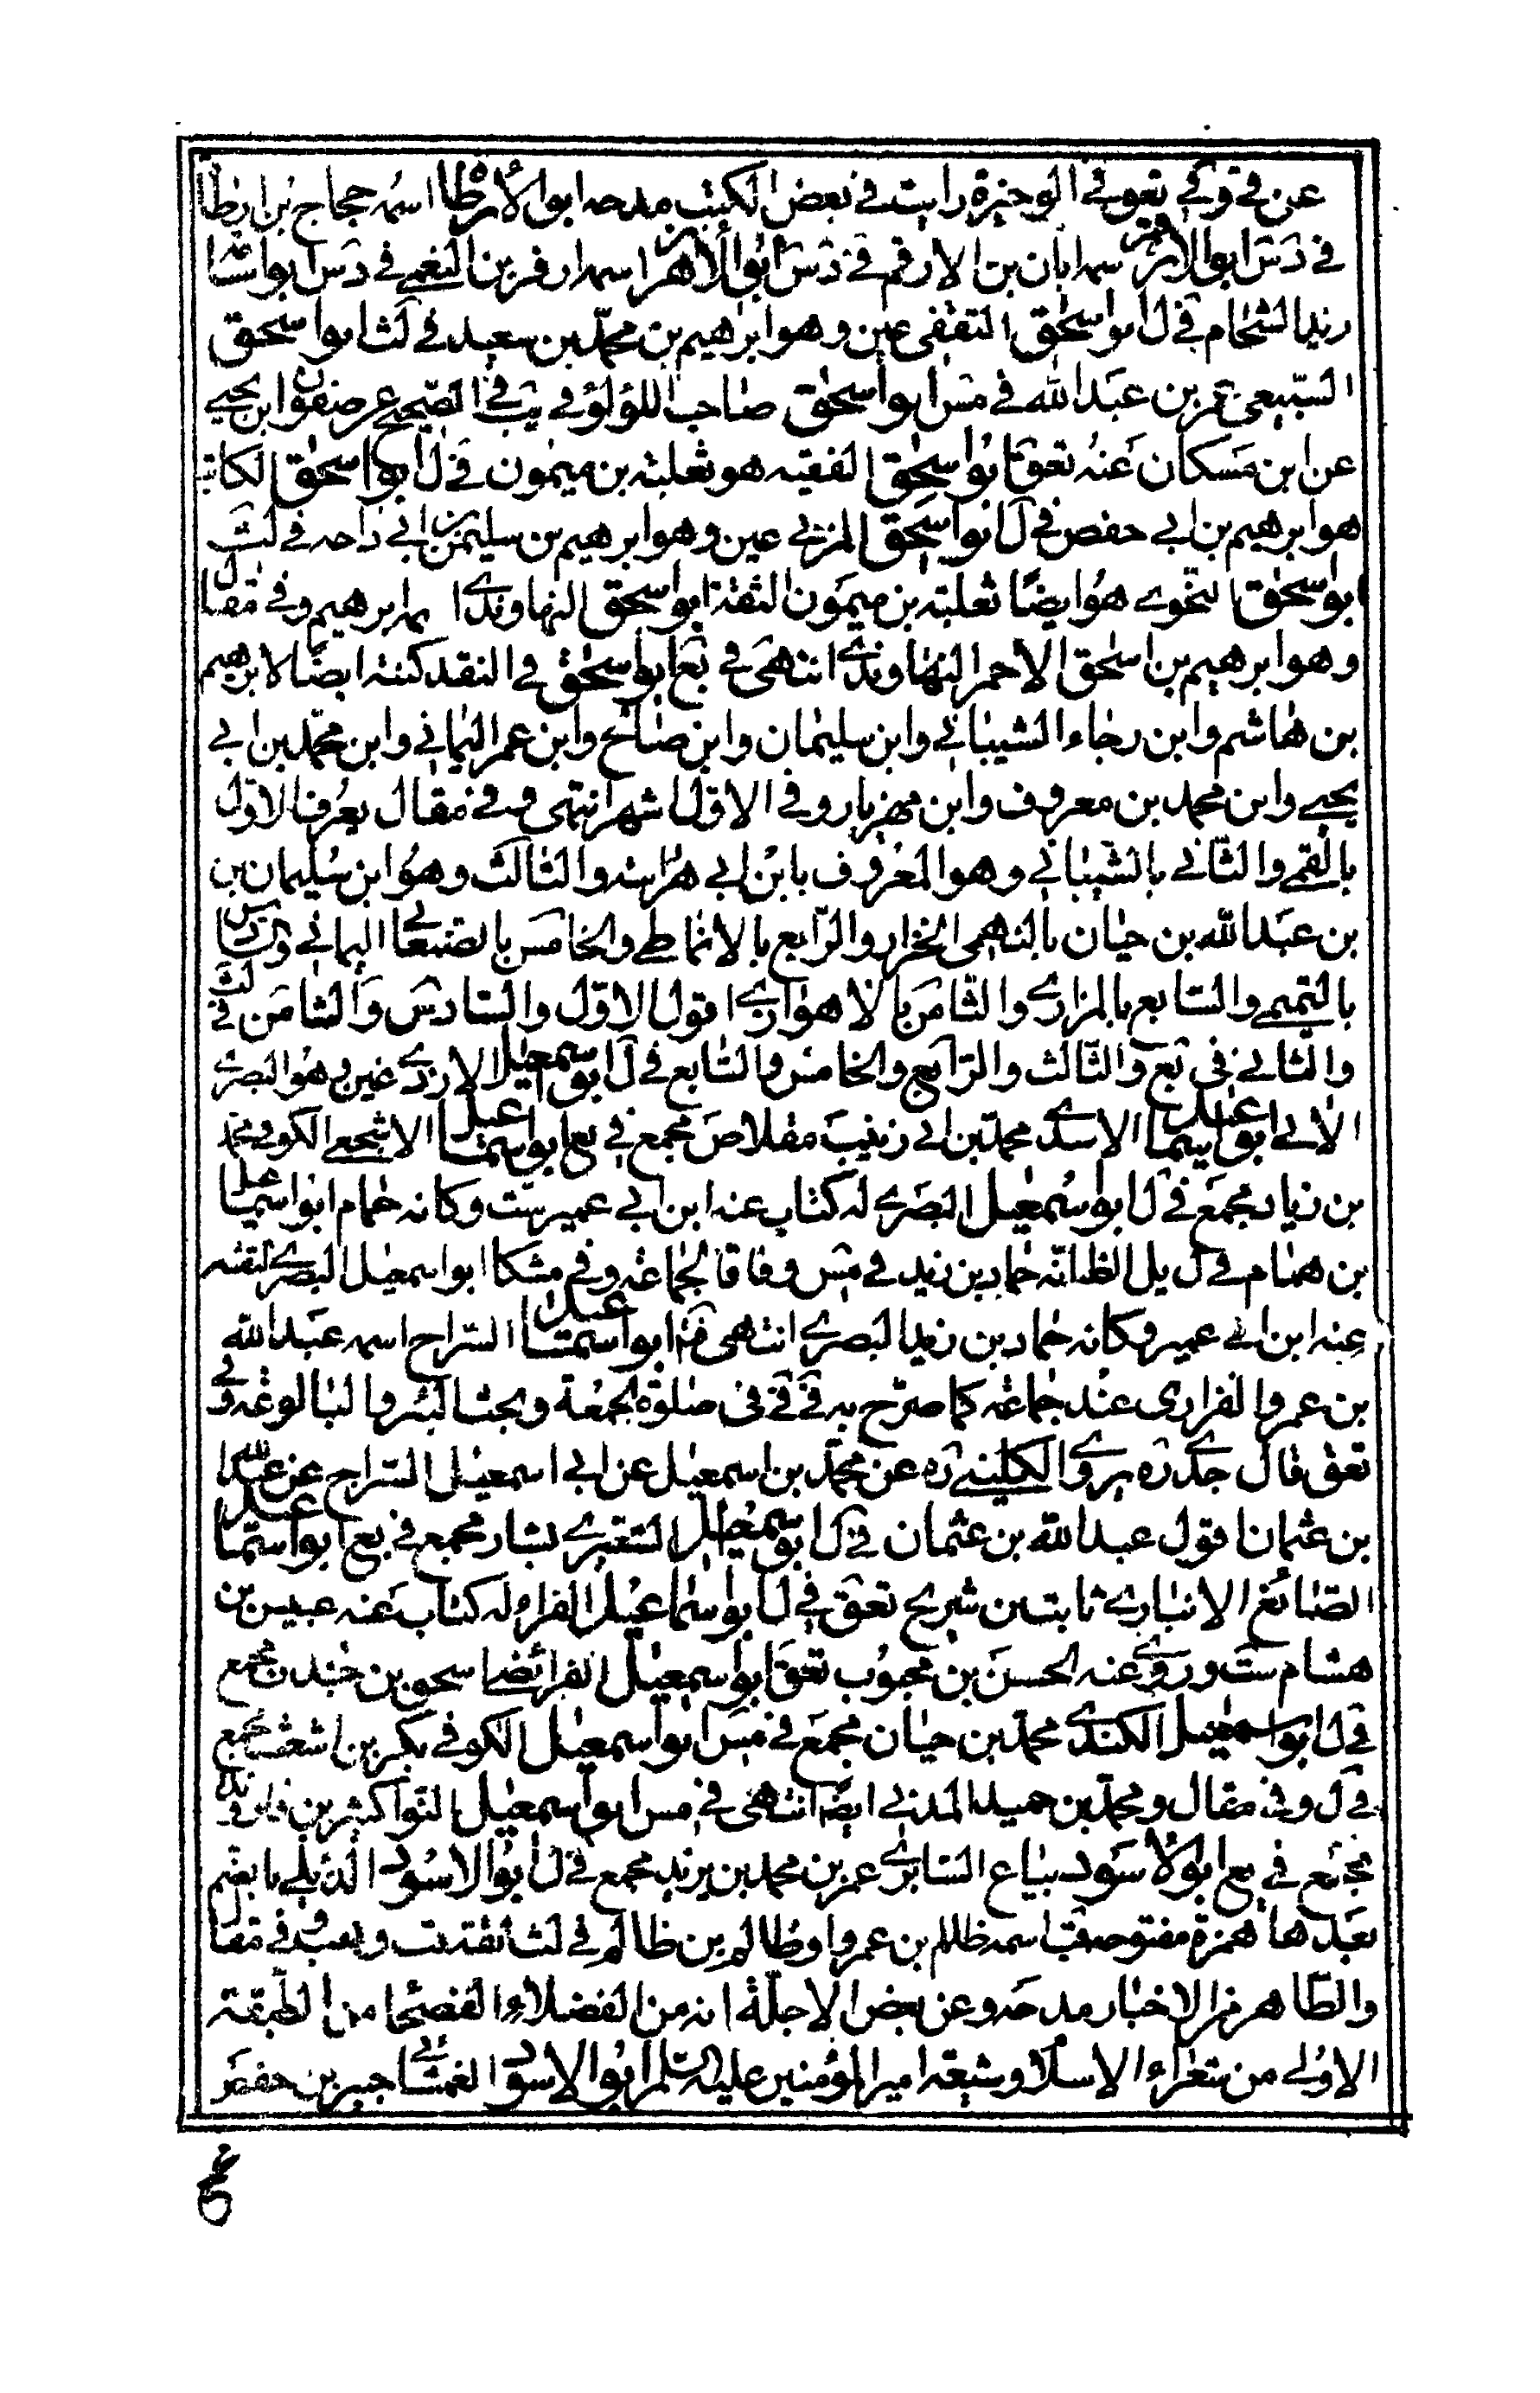 عن في وكے تعق في الوجيزة رايت في بعض الكتب مدحه ابو الارطا اسمه حجاج بن ارطا
في دس ابو الارقم اسمه ابان بن الارقم في دس ابو الازهر اسمه ازفر بن النعمے في دس ابو اسا
زيد الشحام في ل ابو اسحاق الثقفى عين وهو ابرهيم بن محمد بن سعيد في لث ابو اسحق
السبيعى عمر بن عبد الله في مس ابو اسحق صاحب اللؤلؤ في يب في الصحيح عن صفوان بن يحيے
عن ابن مسكان عنه تعق ابو اسحق الفقيه هو ثعلبة بن ميمون في ل ابو اسحق الكاتب
هو ابرهيم بن ابے حفص في ل ابو اسحق المزنے عين وهو ابرهيم بن سليمن بن ابے داحه في لث
ابو اسحاق النحوے هو ايضا ثعلبة بن ميمون الثقة ابو اسحق النهاوندے ابرهيم وفي مقال
وهو ابرهيم بن اسحق الاحمر النهاوندے انتهى في بع ابو اسحق في النقد كنية ايضا لابرهيم
بن هاشم وابن رجاء الشيبانے وابن سليمان وابن صالح وابن عمر اليمانے وابن محمد بن ابے
يحيے وابن محمد بن معروف وابن مهزيار وفي الاول اشهر انتهى وفي مقال يعرف الاول
بالقمے والثانے بالشيبانے وهو المعروف بابن ابے هراسة والثالث وهو ابن سليمان بن
بن عبد الله بن حيان بالنهمى الخزاز والرابع بالانماطے والخامس بالصنعانے اليمانے والسادس
بالتيمے والسابع بالمزارے والثامن بالاهوازے اقول الاول والسادس والثامن في لث
والثانے في بع والثالث والرابع والخامس والسابع في ل ابو اسمعيل الازدے عين وهو البصرے
الاتے ابو اسماعيل الاسدے محمد بن ابے زينب مقلاص مجمع في بع ابو اسماعيل الاشجعے الكوفے محمد
بن زياد مجمع في ل ابو اسمعيل البصرے له كتاب عنه ابن ابے عمير ست وكانه حمام ابو اسماعيل
بن همام في ل بل الظ انه حماد بن زيد في مس وفاقا لجماعة وفي مشكا ابو اسمعيل البصرے الثقة
عنه ابن ابے عمير وكانه حماد بن زيد البصرے انتهى في ابو اسماعيل السراج اسمه عبد الله
بن عمرو الفزارى عند جماعة كما صرح به في في فى صلوة الجمعة وبحث البئر والبالوعة وفي
تعق قال جدے ره يروے الكلينے ره عن محمد بن اسمعيل عن ابے اسمعيل السراج عن عبد الله
بن عثمان اقول عبد الله بن عثمان في ل ابو اسمعيل الشعيرے بشار مجمع في بع ابو اسماعيل
الصائغ الانبارے ثابت بن شريح تعق في ل ابو اسماعيل الفراء له كتاب عنه عبيس بن
هشام ست وروے عنه الحسن بن محبوب تعق ابو اسمعيل الفرائضے اسحق بن جندب مجمع
في ل ابو اسمعيل الكندے محمد بن حيان مجمع في مس ابو اسمعيل الكوفے بكر بن اشعث مجمع
في ل وفي مقال ومحمد بن حميد المدنے ايضا انتهى في مس ابو اسمعيل النوا كثير بن
مجمع في بع ابو الاسود بياع السابرے عمر بن محمد بن يزيد مجمع في ل ابو الاسود الدئلے بالضم
بعدها همزة مفتوحة قب اسمه ظالم بن عمرو او ظالم بن ظالم في لث ثقة وفي مقال
والظاهر من الاخبار مدحه وعن بعض الاجلة انه من الفضلاء والفصحا من الطبقة
الاولے من شعراء الاسلام وشيعة امير المؤمنين عليه السلم ابو الاسود الغمشانے جبير بن حفص